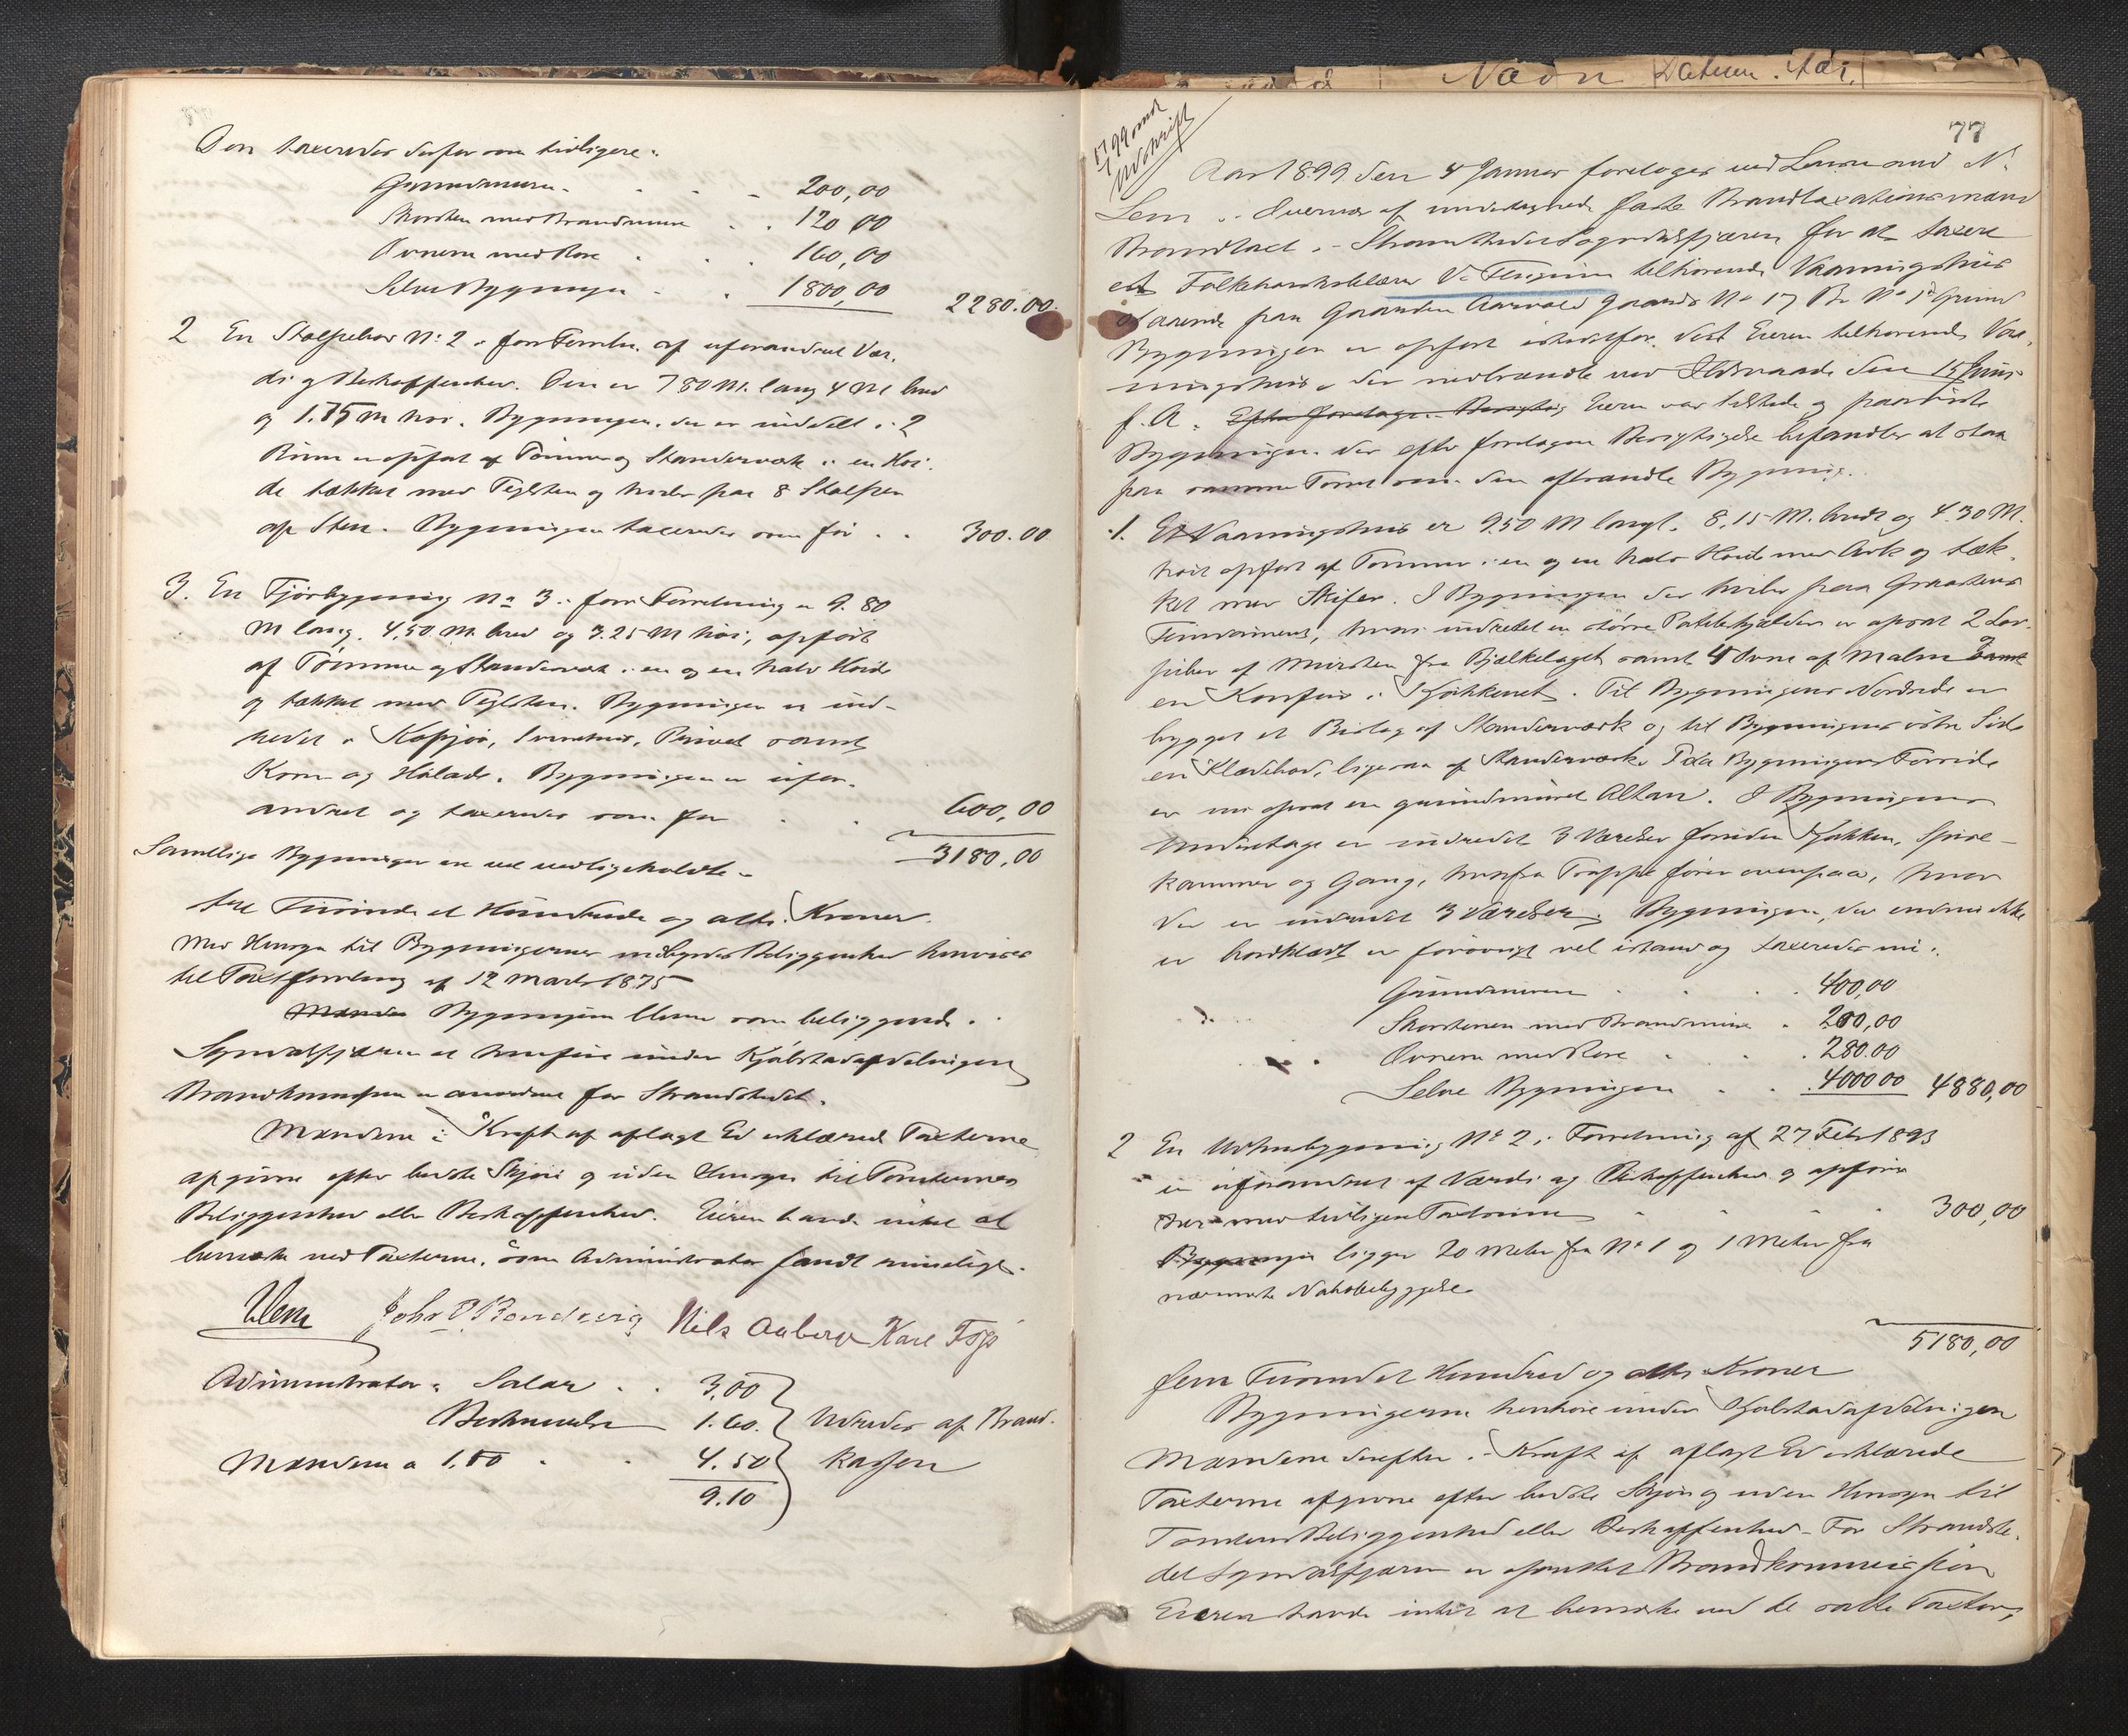 Den taxeredes derfor som tidligere:
Grundmuren 200,00
Skorsten med Brandmure 120,00
Ovnene med Rør 160,00
Selve Bygningen 1800,00 2280.00.
2 En Stolpebod No: 2 i forr. Forretn. af uforandret Vær-
di og Beskaffenhed. Den er 7 80 M. lang 4 M bred
og 1.75 M høi. Bygningen, der er inddelt i 2
Rum er opført af Tømmer og Standerværk i en Høi-
de tækket med Teglsten og hviler paa 8 Stolper
af Sten. Bygningen taxeredes som før 300.00
3. En Fjøsbygning No 3 i forr. Forretning er 9.80
M lang, 4,50 M bred og 3.25 M høi, opført
af Tømmer og Standerværk i en og en halv Høide
og tækket med Teglsten. Bygningen er ind-
redet i Kofjøs, Svinehus, Privet samt
Korn og Hølade. Bygningen er ufor-
andret og taxeredes som før 600,00
3180,00
Samtlige Bygninger ere vel vedligeholdte.
tre Tusinde et Hundrede og otti Kroner.
Med Hensyn til Bygningernes indbyrdes Beliggenhed henvises
til Taxtforretning af 12 Marts 1875
Mændene Bygningerne blev som beliggende i
Sogndalsfjæren at henføre under Kjøbstadafdelingen
Brandkommission er anordnet for Strandstedet.
Mændene i Kraft af aflagt Ed erklærede Taxterne
afgivne efter bedste Skjøn og uden Hensyn til Tomternes
Beliggenhed eller Beskaffenhed. Eieren havde intet at
bemærke ved Taxterne, som Administrator fandt rimelige.
NLem John O Bondevig Nils Aaberge Karl Fosse
Administrator i Salær 3,00
Beskrivelse 1.60. Udredes af Brand-
Mændene a 1.50 4.50 kassen
9.10
77
1799 omdt
Udskrift
Aar 1899 den 4 Januar foretoges ved Lensmand N.
Lem i Overvær af undertegnede faste Brandtaxationsmænd
Brandtaxt i Strandstedet Sogndalsfjæren for at taxere
et Folkehøiskolelærer V. tilhørende Vaaningshus
staaende paa Gaarden Aarvold Gaards No 17 Br No 1s Grund
Bygningen er opført istedetfor det Eieren tilhørende Vaa-
ningshus der nedbrændte ved Ildsvaade den 15 Juni
f. A. Efter foretagen Besigtig Eieren var tilstede og paaviste
Bygningen der efter foretagen Besigtigelse befandtes at staa
paa samme Tomt som den afbrændte Bygning.
1. Et Vaaningshus er 9.50 M langt, 8,15 M. bredt og 4.30 M.
høit opført af Tømmer i en og en halv Høide med Ark og tæk-
ket med Skifer. I Bygningen der hviler paa Graastens
Grundmur, hvori indrettet en større Potetkjælder er opsat 2 Lør-
piber af Mursten fra Bjælkelaget samt 4 Ovne af Malm samt
en Komfur i Kjøkkenet. Til Bygningens Nordside er
bygget et Bislag af Standerværk og til Bygningens østre Side
en Klædebod, ligesaa af Standerværk. Paa Bygningens Forside
er nu opsat en grundmuret Altan. I Bygningens
Underetage er indredet 3 Værelser foruden Kjøkken, Spise-
kammer og Gang, hvorfra Trappe fører ovenpaa, hvor
der er indredet 3 Værelser. Bygningen, der endnu ikke
er bordklædt er forøvrigt vel istand og taxeredes nu:
Grundmuren 400,00
Skorstenen med Brandmure 200,00
Ovnene med Rør 280.00
Selve Bygningen 4000 00 4880,00
2 En Udhusbygning No 2 i Forretning af 27 Febr 1893
er uforandret af Værdi og Beskaffenhed og opføres
med tidligere Taxtsum 300,00
Bygningen ligger 20 Meter fra No 1 og 1 Meter fra
nærmeste Nabobebyggelse
5180,00
fem Tusindet Hundred og otti Kroner
Bygningerne henhøre under Kjøbstadafdelingen
Mændene derefter i Kraft af aflagt Ed erklærede
Taxterne afgivne efter bedste Skjøn og uden Hensyn til
Tomtens Beliggenhed eller Beskaffenhed. For Strandste-
det Sogndalsfjæren er opnævnt Brandkommission
Eieren havde intet at bemærke ved de satte Taxter,